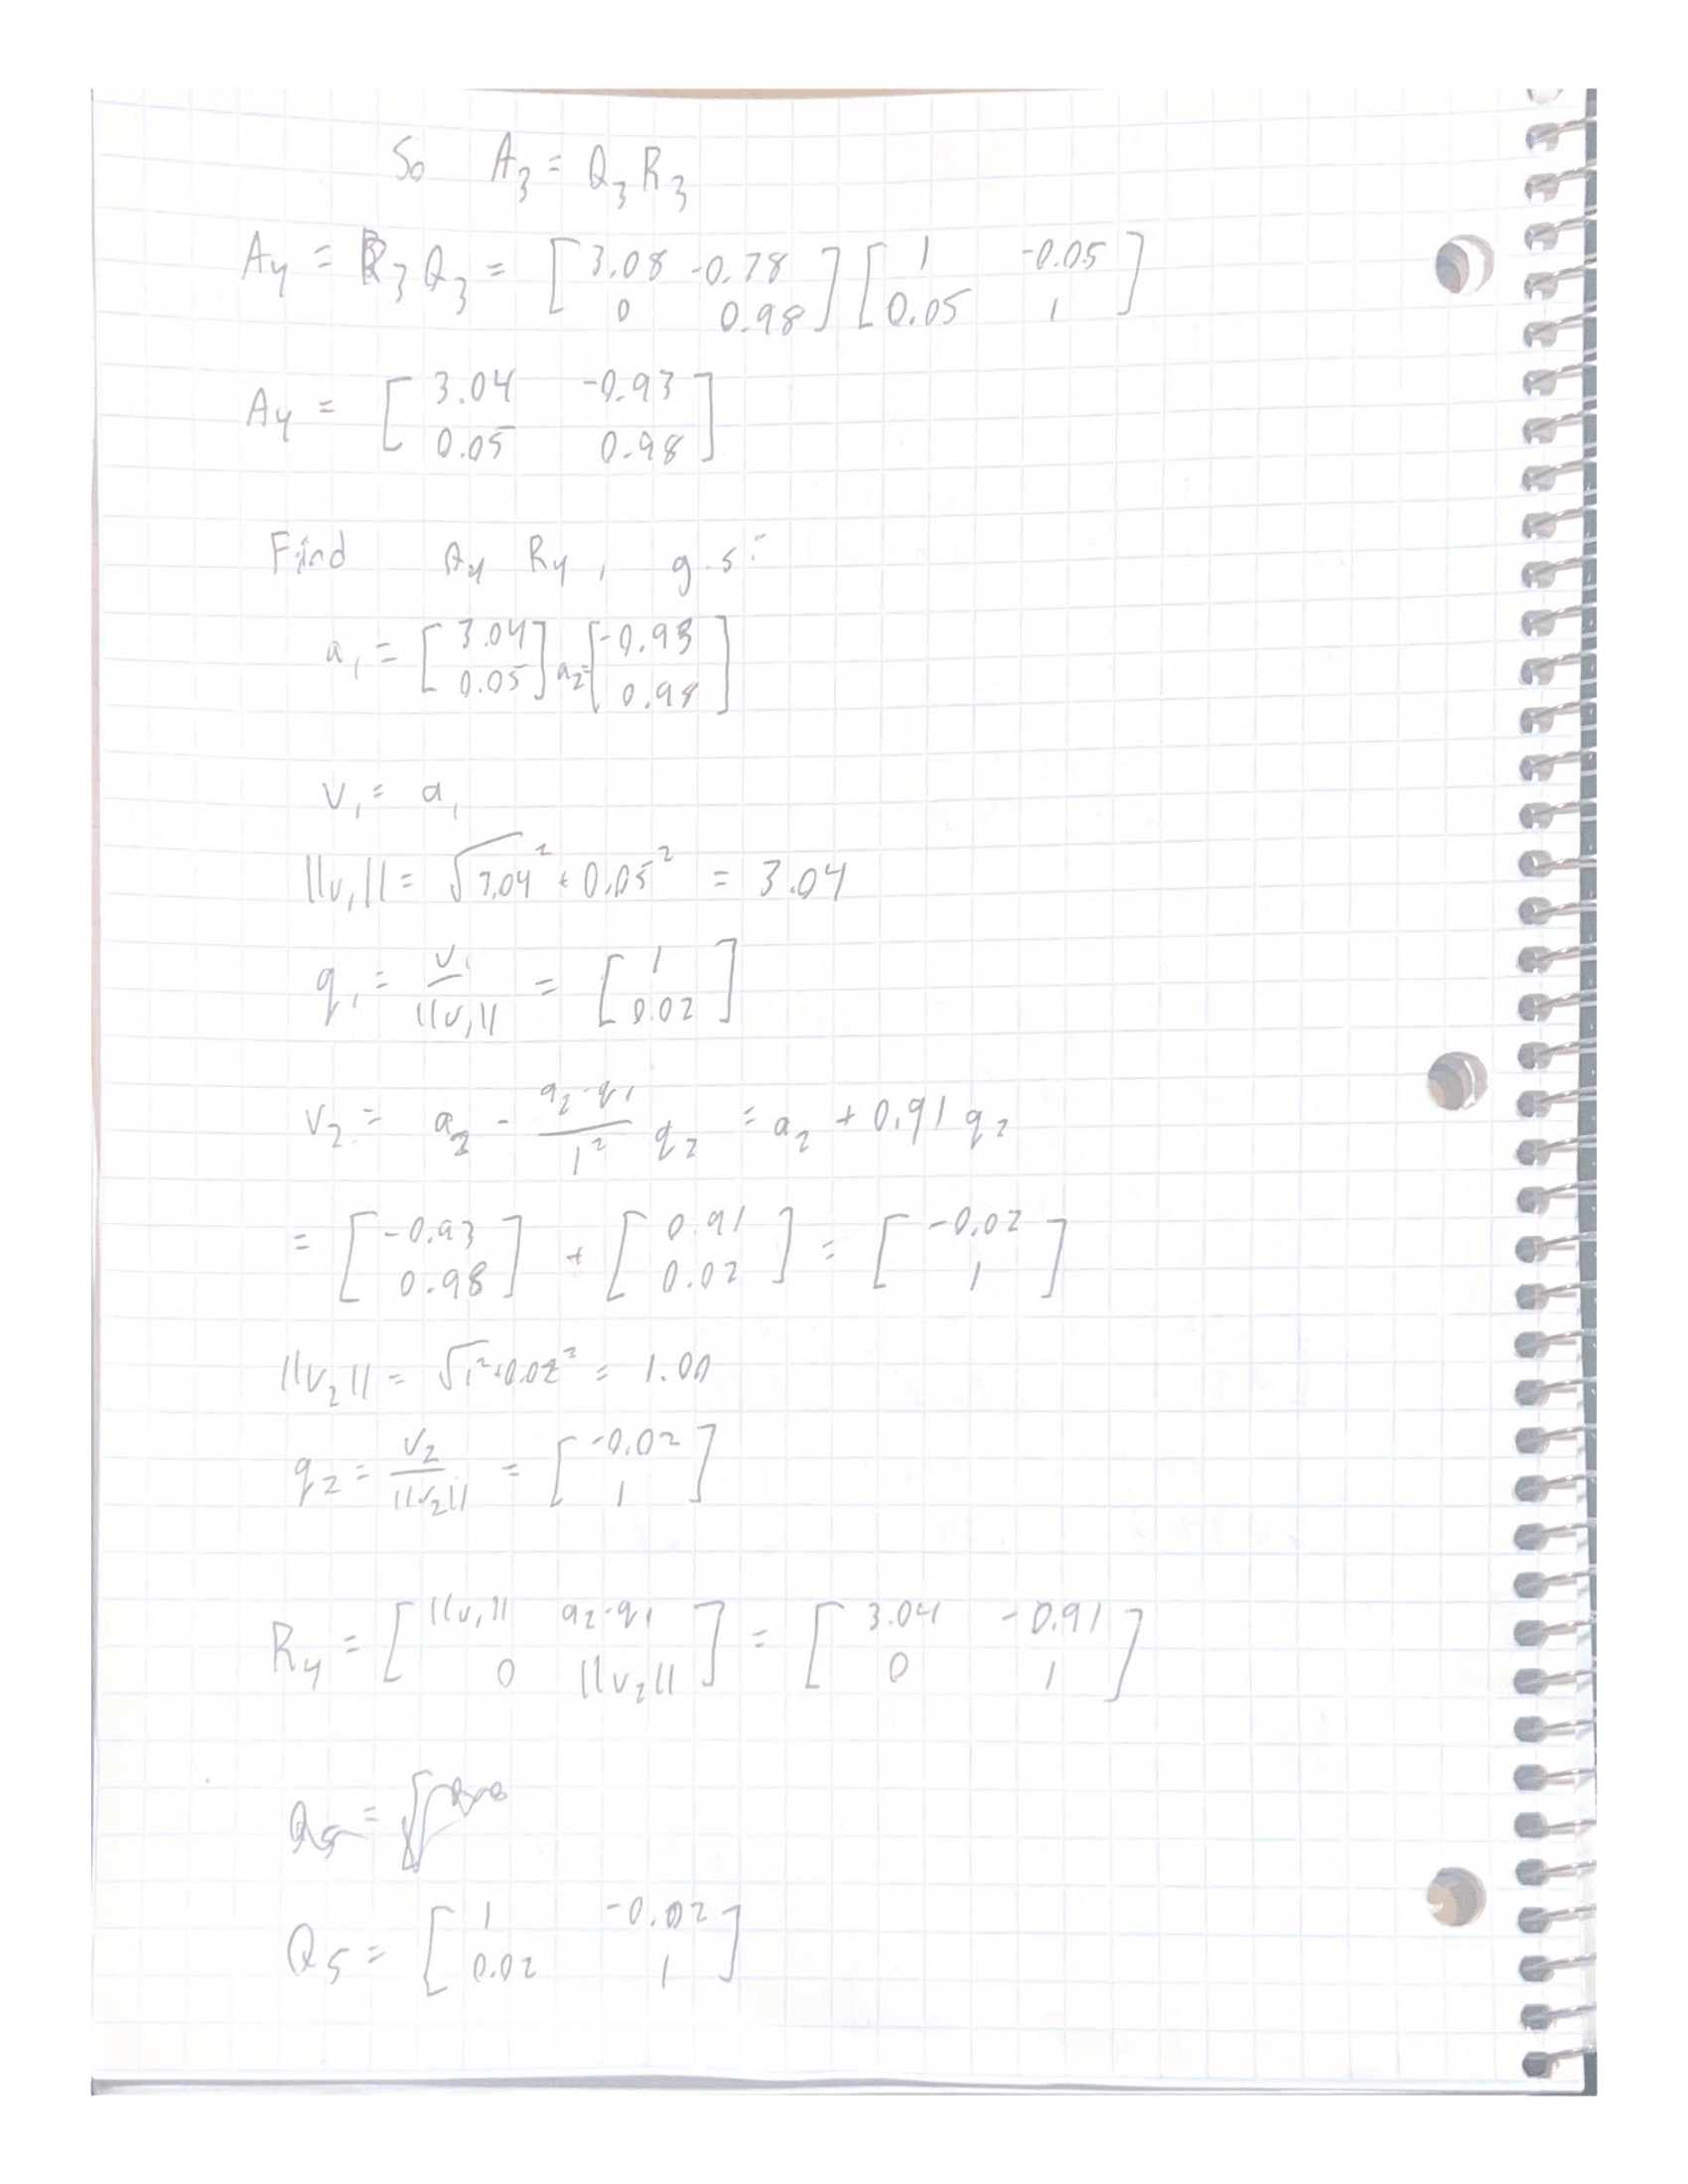 So A₃ = Q₃ R₃
A₄ = R₃ Q₃ = [3.08 -0.78; 0 0.98] [1 -0.05; 0.05 1]
A₄ = [3.04 -0.93; 0.05 0.98]
Find Q₄ R₄, g.s:
a₁ = [3.04; 0.05] a₂ = [-0.93; 0.98]
v₁ = a₁
||v₁|| = √(3.04² + 0.05²) = 3.04
q₁ = v₁/||v₁|| = [1; 0.02]
v₂ = a₂ - (a₂·q₁)/1² q₂ = a₂ + 0.91 q₂
= [-0.93; 0.98] + [0.91; 0.02] = [-0.02; 1]
||v₂|| = √(1²+0.02²) = 1.00
q₂ = v₂/||v₂|| = [-0.02; 1]
R₄ = [||v₁|| a₂·q₁; 0 ||v₂||] = [3.04 -0.91; 0 1]
Q₅ =
Q₅ = [1 -0.02; 0.02 1]